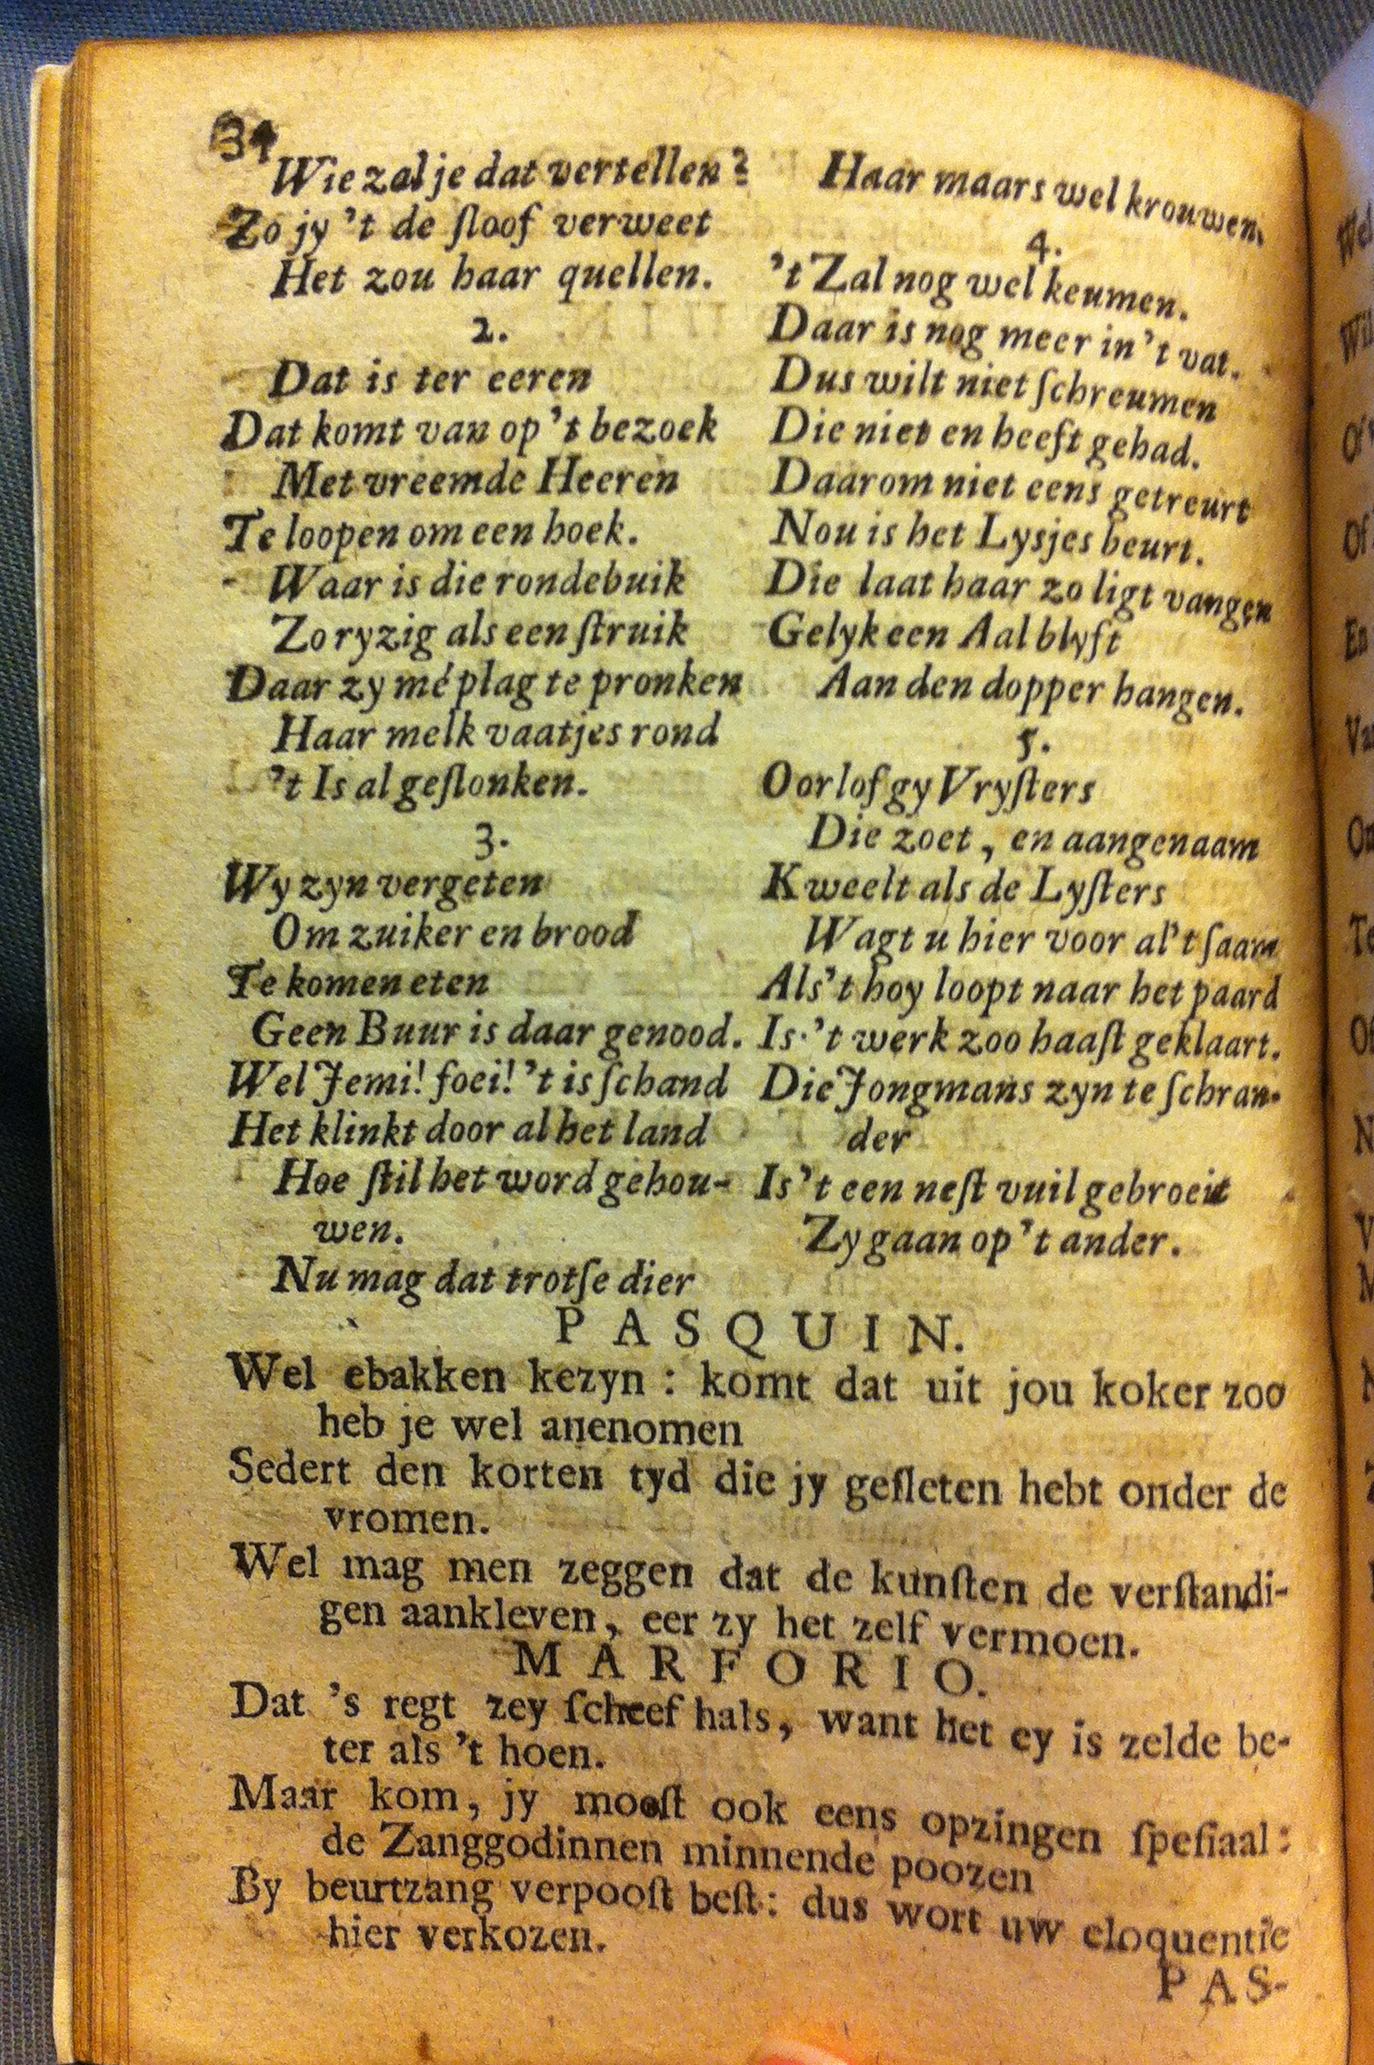 34
Wie zal je dat vertellen?
Zo jy 't de ſloof verweet
Het zou haar quellen.
2.
Dat is ter eeren
Dat komt van op 't bezoek
Met vreemde Heeren
Te loopen om een hoek.
Waar is die rondebuik
Zo ryzig als een ſtruik
Daar zy mé plag te pronken
Haar melk vaatjes rond
't Is al geſlonken.
3.
Wy zyn vergeten
Om zuiker en brood
Te komen eten
Geen Buur is daar genood.
Wel Jemi! foei! 't is ſchand
Het klinkt door al het land
Hoe ſtil het word gehou-
wen.
Nu mag dat trotſe dier
Haar maars wel krouwen.
4.
't Zal nog wel keumen.
Daar is nog meer in 't vat.
Dus wilt niet ſchreumen
Die niet en heeft gehad.
Daarom niet eens getreurt
Nou is het Lysjes beurt.
Die laat haar zo ligt vangen
Gelyk een Aal blyft
Aan den dopper hangen.
5.
Oorlof gy Vryſters
Die zoet, en aangenaam
Kweelt als de Lyſters
Wagt u hier voor al 't ſaam
Als 't hoy loopt naar het paard
Is 't werk zoo haaſt geklaart.
Die Jongmans zyn te ſchran-
der
Is 't een neſt vuil gebroeit
Zy gaan op 't ander.
PASQUIN.
Wel ebakken kezyn : komt dat uit jou koker zoo
heb je wel anenomen
Sedert den korten tyd die jy geſleten hebt onder de
vromen.
Wel mag men zeggen dat de kunſten de verſtandi-
gen aankleven, eer zy het zelf vermoen.
MARFORIO.
Dat 's regt zey ſcheef hals, want het ey is zelde be-
ter als 't hoen.
Maar kom, jy mooſt ook eens opzingen ſpeſiaal :
de Zanggodinnen minnende poozen
By beurtzang verpooſt beſt: dus wort uw eloquentie
hier verkozen.
PAS-